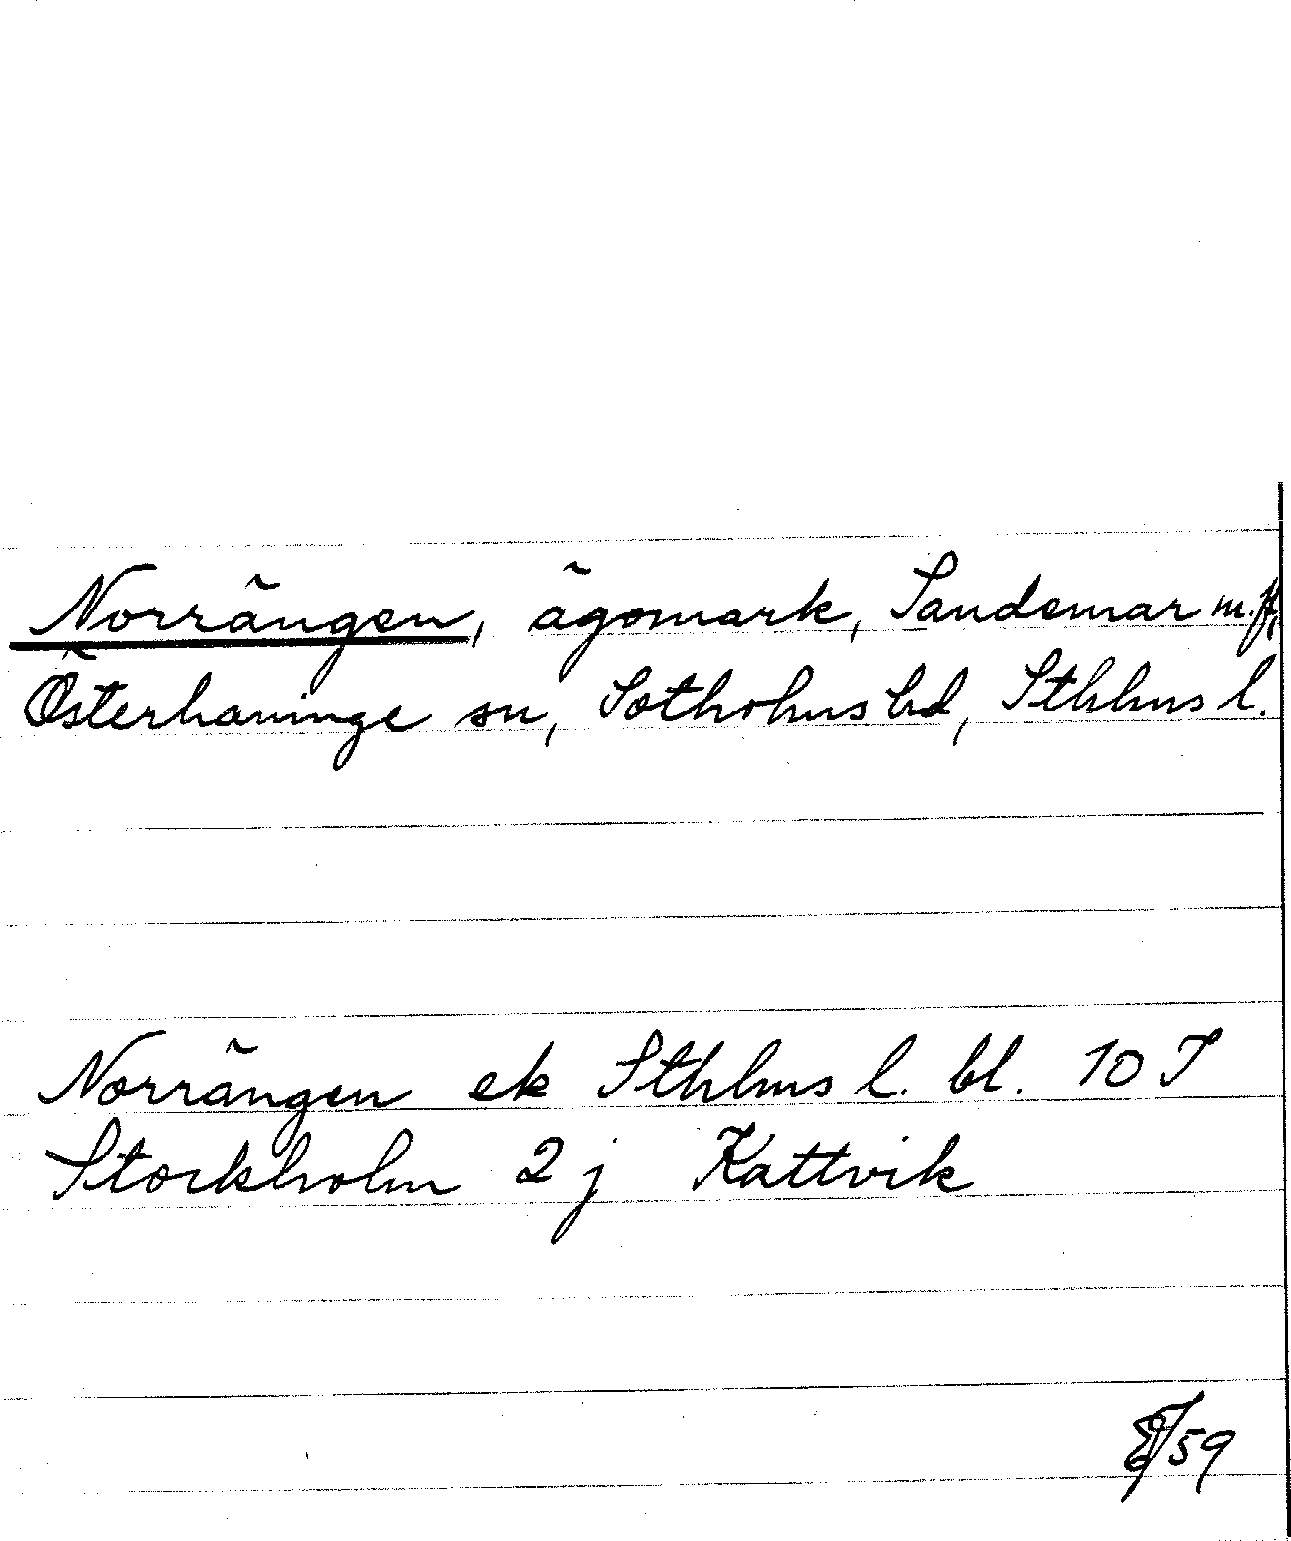 Norrängen, ägomark, Sandemar m.fl,
Österhaninge sn, Sotholms hd, Sthlms l.
Norrängen ek Sthlms l. bl. 10 I
Stockholm 2 j Kattvik
59